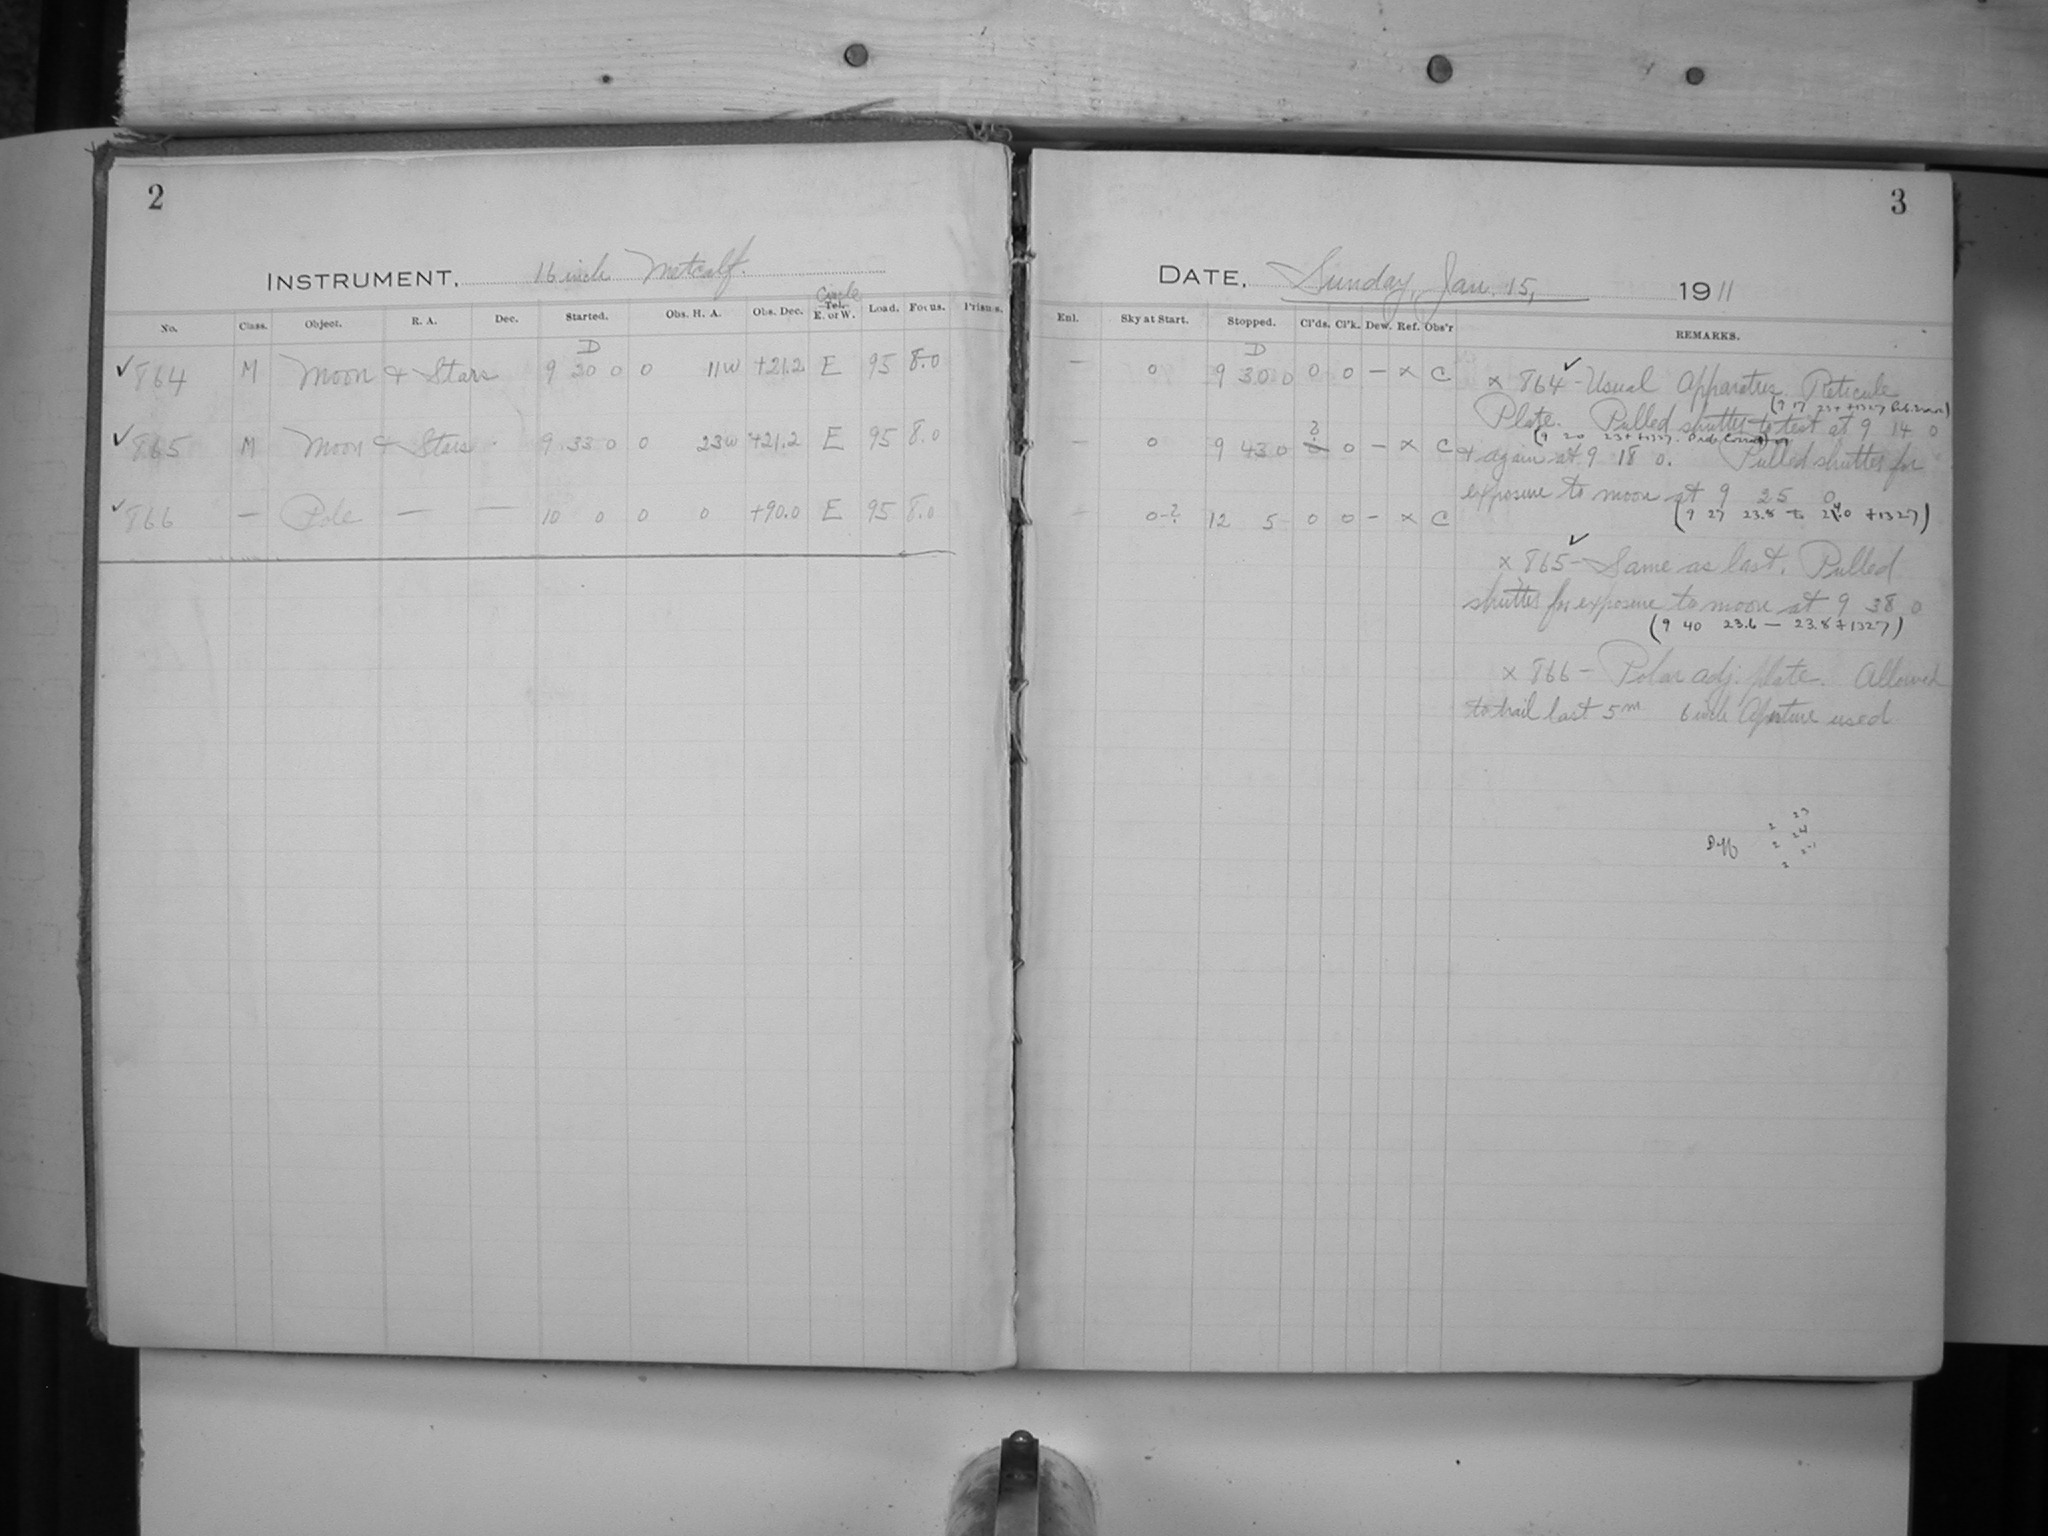 2
INSTRUMENT, 16 inch Metcalf.
Circle
No. Class. Object. R. A. Dec. Started. Obs. H. A. Obs. Dec. Tel. E. or W. Load. Focus. Prisms.
D
✓864 M Moon & Stars 9 30 0 0 11W +21.2 E 95 8.0
✓865 M Moon & Stars 9 33 0 0 23W +21.2 E 95 8.0
✓866 — Pole — — 10 0 0 0 +90.0 E 95 8.0
3
DATE, Sunday, Jan. 15, 1911
Enl. Sky at Start. Stopped. Cl'ds. Cl'k. Dew. Ref. Obs'r REMARKS.
D
— 0 9 30 0 0 0 — x C
?
— 0 9 43 0 0 0 — x C
— 0-? 12 5 — 0 0 — x C
x 864 ✓ – Usual Apparatus. Reticule
(9 17 23+ +1327
Plate. Pulled shutter to test at 9 14 0
(9 20 23+ +1327.
& again at 9 18 0. Pulled shutter for
exposure to moon at 9 25 0
(9 27 23.8 to 24.0 +1327)
x 865 ✓ – Same as last. Pulled
shutter for exposure to moon at 9 38 0
(9 40 23.6 — 23.8 +1327)
x 866 – Polar adj. plate. Allowed
to trail last 5m 6 inch Aperture used
23
2
24
Diff
2
2